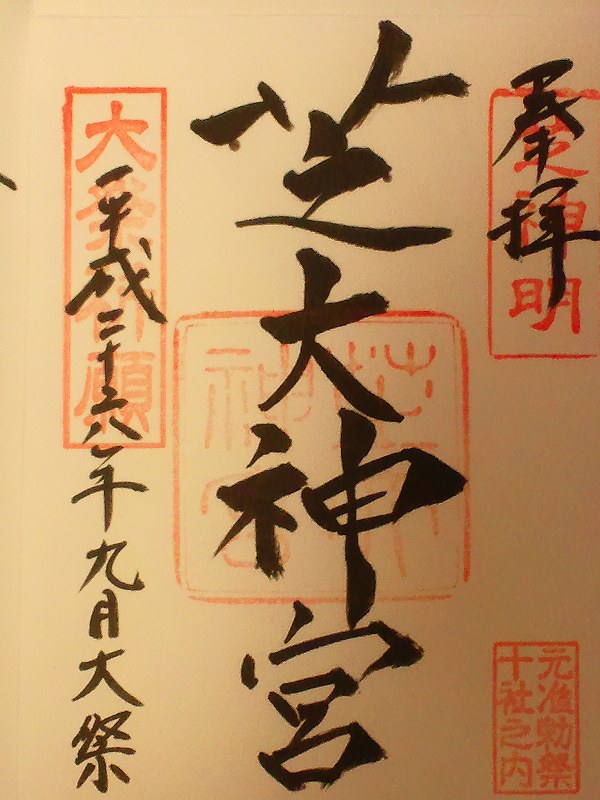 奉拝
芝神明
元准勅祭
十社之内
芝大神宮
平成二十六年九月大祭